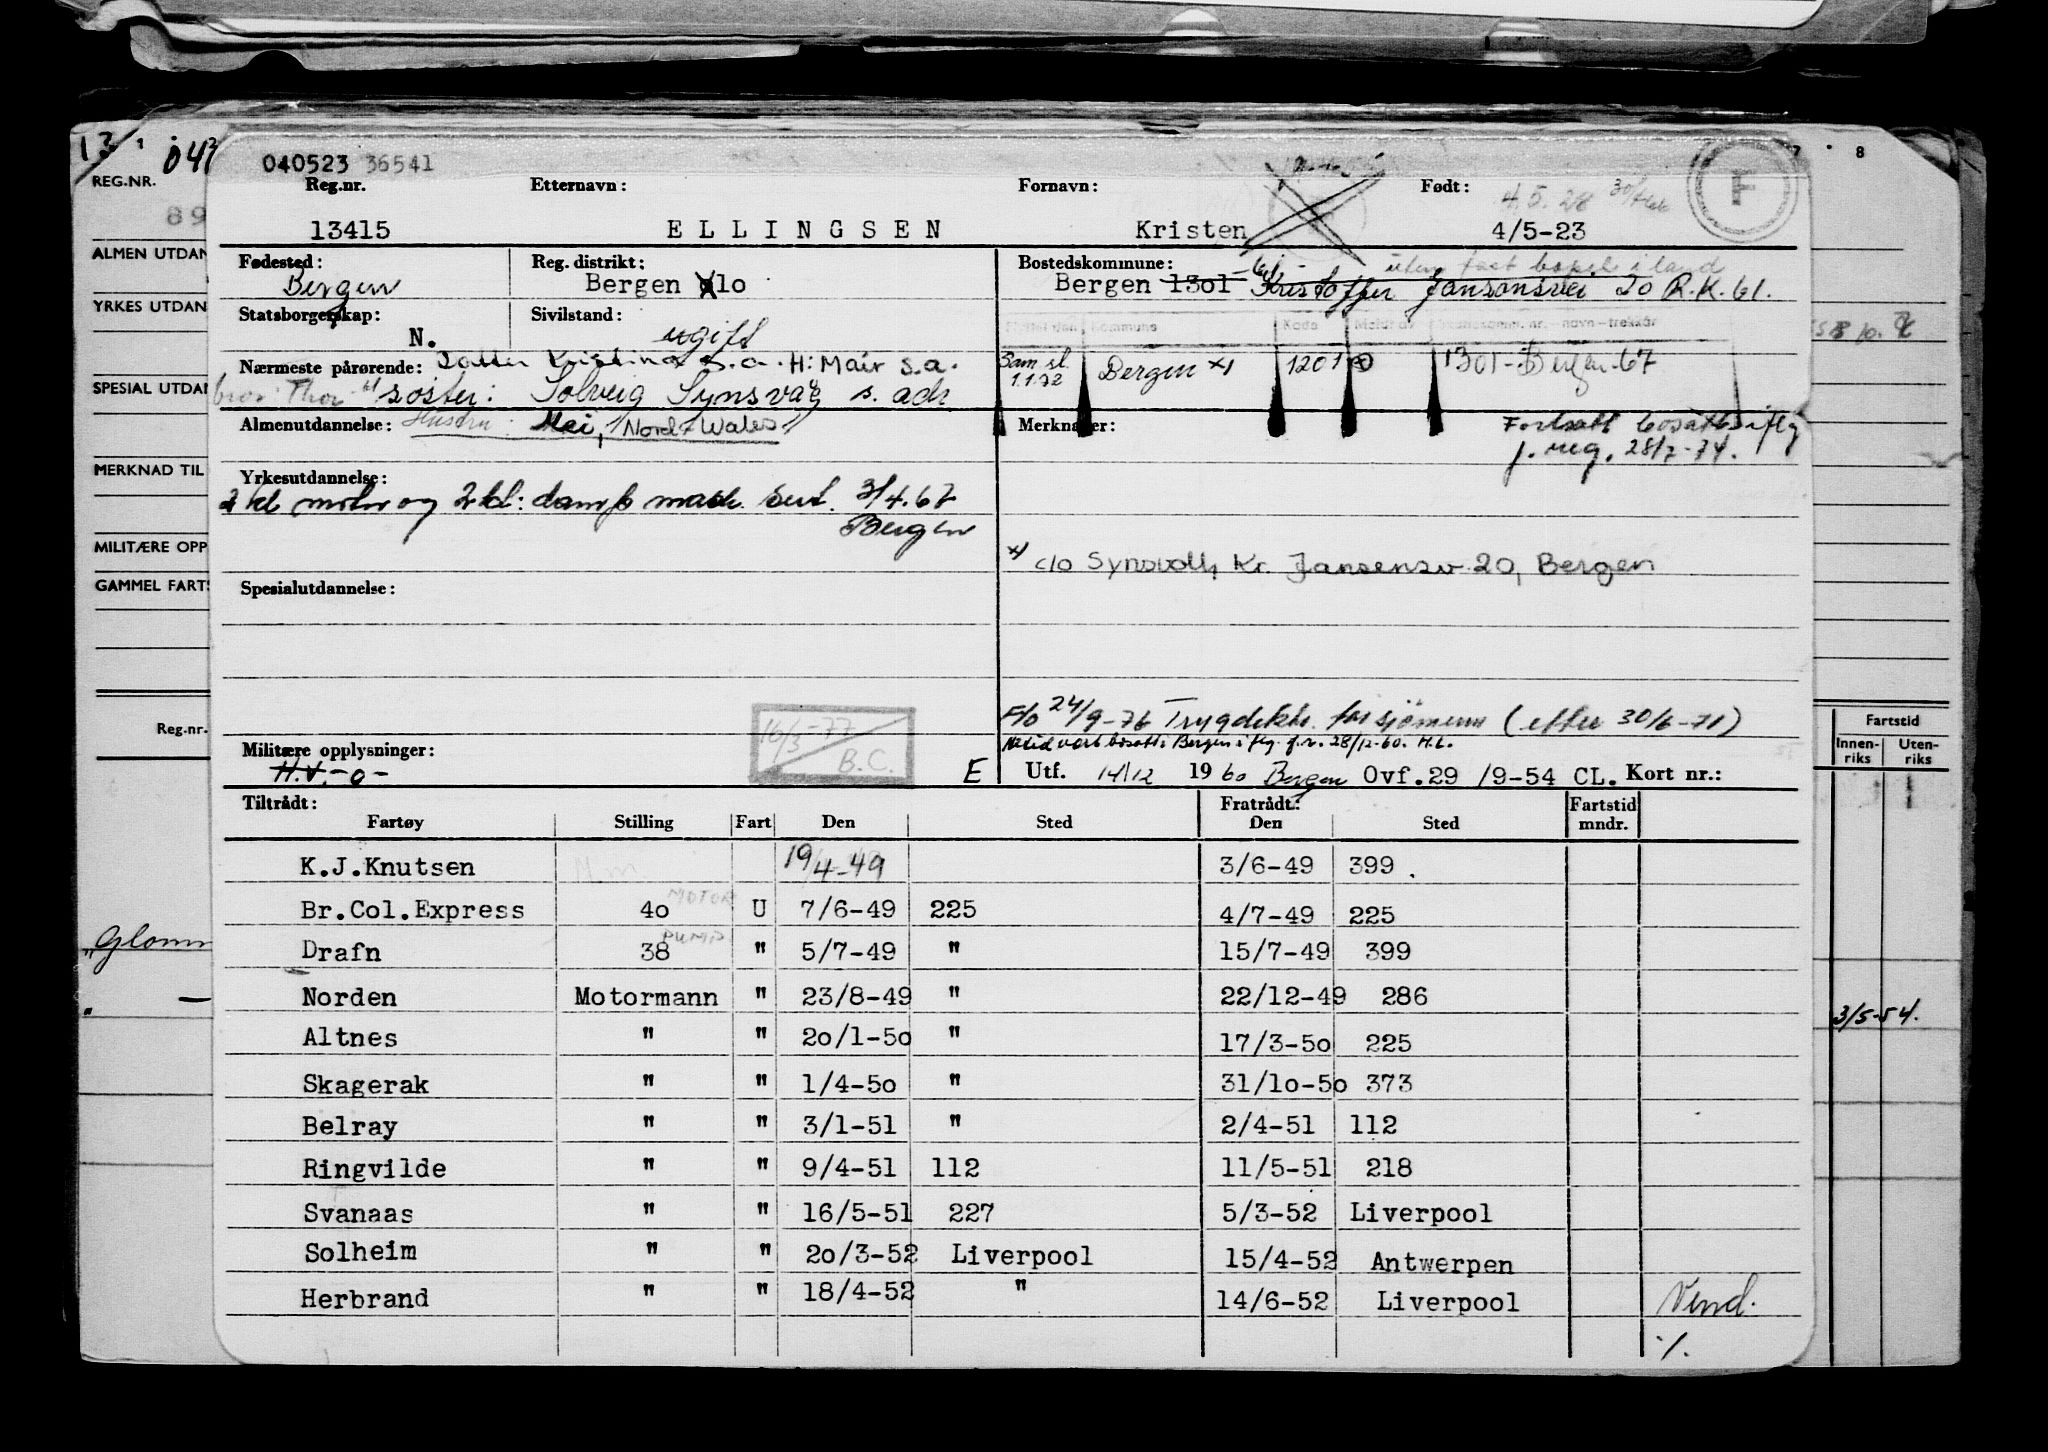 040523 36541
Reg.nr. Etternavn: Fornavn: Født: 4.5.28
13415 ELLINGSEN Kristen 4/5-23
F
Fødested: Reg. distrikt: Bostedskommune: uten fast bopel i land
Bergen Bergen lo Bergen 1301 Kristoffer Jansonsvei 20 R.K. 61.
Statsborgerskap: Sivilstand:
N. ugift
Kommune Kode Meldt av
Nærmeste pårørende: Datter Kristina s.a. H: Mair s.a.
Sam sl. 1.1.72 Bergen x) 1201 1301-Bergen-67
bror Thor søster: Solveig Synsvaag s. adr.
Almenutdannelse: Hustru: Mei, Nord-Wales
Merknader: Fortsatt bosatt iflg
f. reg. 28/7-74.
Yrkesutdannelse:
2 kl motor og 2 kl: damp mask. sert. 3/4.67
Bergen
x) c/o Synsvoll, Kr. Jansensv. 20, Bergen
Spesialutdannelse:
F/o 24/9-76 Trygdektr. for sjømenn (efter 30/6-71)
Altid vært bosatt i Bergen iflg. f.r. 28/12-60. H.L.
16/3-77
B.C.
Militære opplysninger:
H.V. -o-
E Utf. 14/12 1960 Bergen Ovf.29 /9-54 CL. Kort nr.:
Tiltrådt: Fratrådt: Fartstid
Fartøy Stilling Fart Den Sted Den Sted mndr.
K.J.Knutsen 19/4-49 3/6-49 399
MOTOR
Br.Col.Express 40 U 7/6-49 225 4/7-49 225
PUMP
Drafn 38 " 5/7-49 " 15/7-49 399
Norden Motormann " 23/8-49 " 22/12-49 286
Altnes " " 2o/1-5o " 17/3-5o 225
Skagerak " " 1/4-5o " 31/1o-5o 373
Belray " " 3/1-51 " 2/4-51 112
Ringvilde " " 9/4-51 112 11/5-51 218
Svanaas " " 16/5-51 227 5/3-52 Liverpool
Solheim " " 2o/3-52 Liverpool 15/4-52 Antwerpen
Herbrand " " 18/4-52 " 14/6-52 Liverpool Vend.
./.
13
REG.NR.
89
ALMEN UTDAN
YRKES UTDAN
SPESIAL UTDAN
MERKNAD TIL
MILITÆRE OPP
GAMMEL FARTS
Reg.nr.
"Glomm
" —
8
Fartstid
Innen- Uten-
riks riks
3/5-54.